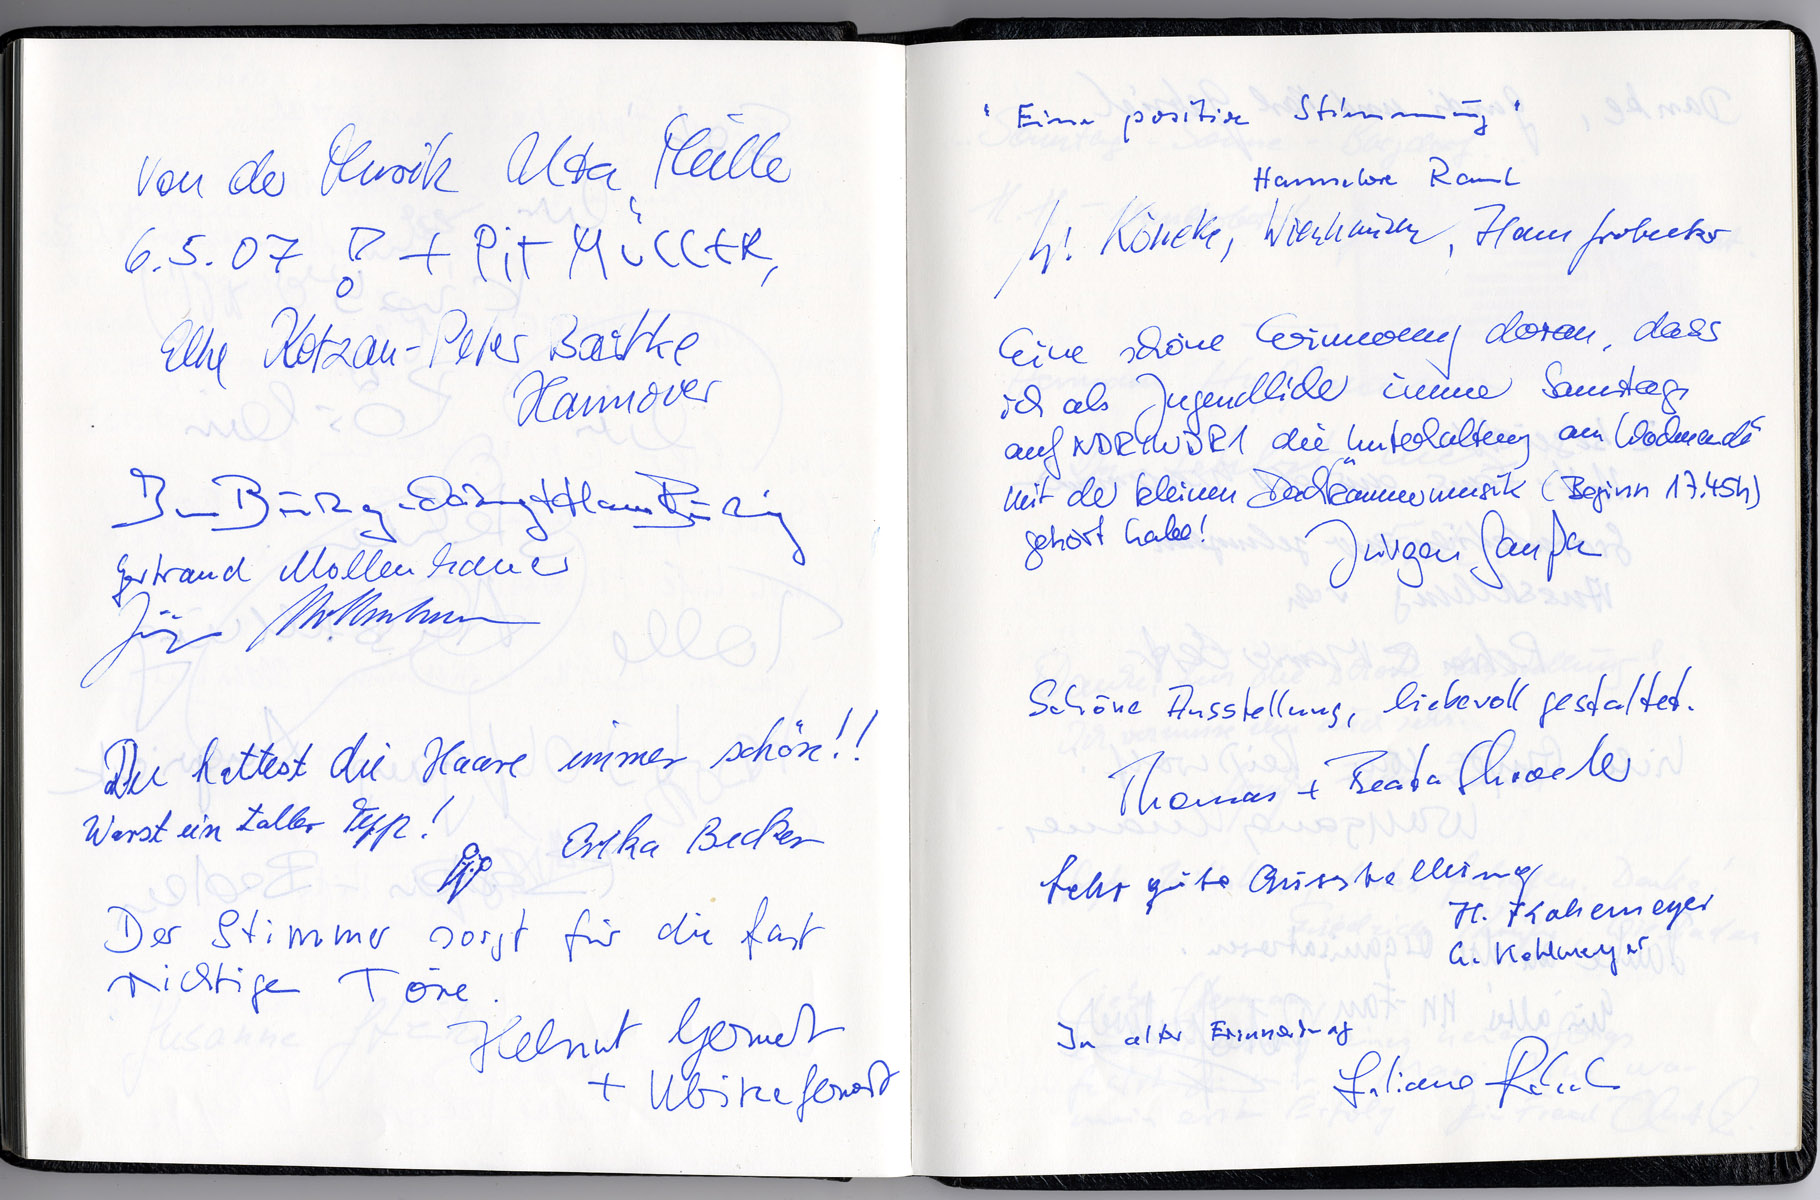 von der Musik Uta Mülle
6.5.07 + Pit MÜLLER,
Elke Kotzan-Peter Bartke
Hannover
Gertraud Mollenhauer
Jürgen
Du hattest die Haare immer schön!!
Warst ein toller Typ!
Erika Becker
Der Stimmer sorgt für die fast
richtigen Töne.
Helmut Gernert
+ Ulrike Gernert
"Eine positive Stimmung"
Hannelore
Köneke, Hans
Eine schöne Erinnerung daran, dass
ich als Jugendliche immer Samstags
auf NDR1WDR1 die Unterhaltung am Wochenende
mit der kleinen Dachkammermusik (Beginn 17.45h)
gehört habe!
Jürgen
Schöne Ausstellung, liebevoll gestaltet.
Thomas + Beate
Sehr gute Ausstellung
H.
G. Kohlmeyer
In alter Erinnerung
Liliane